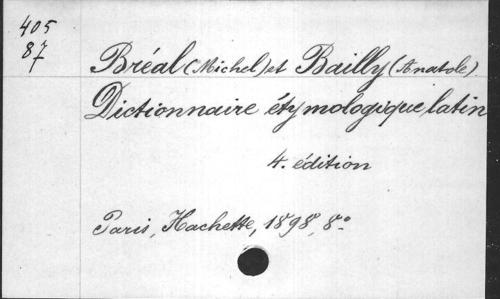 405
87
Bréal (Michel) et Bailly (Anatole)
Dictionnaire étymologique latin
4. édition
Paris, Hachette, 1898, 8º